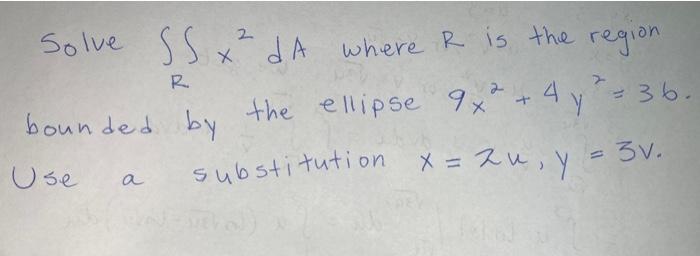 Solve ∫∫ x² dA where R is the region
R
bounded by the ellipse 9x² + 4y² = 36.
Use a substitution x = 2u, y = 3v.